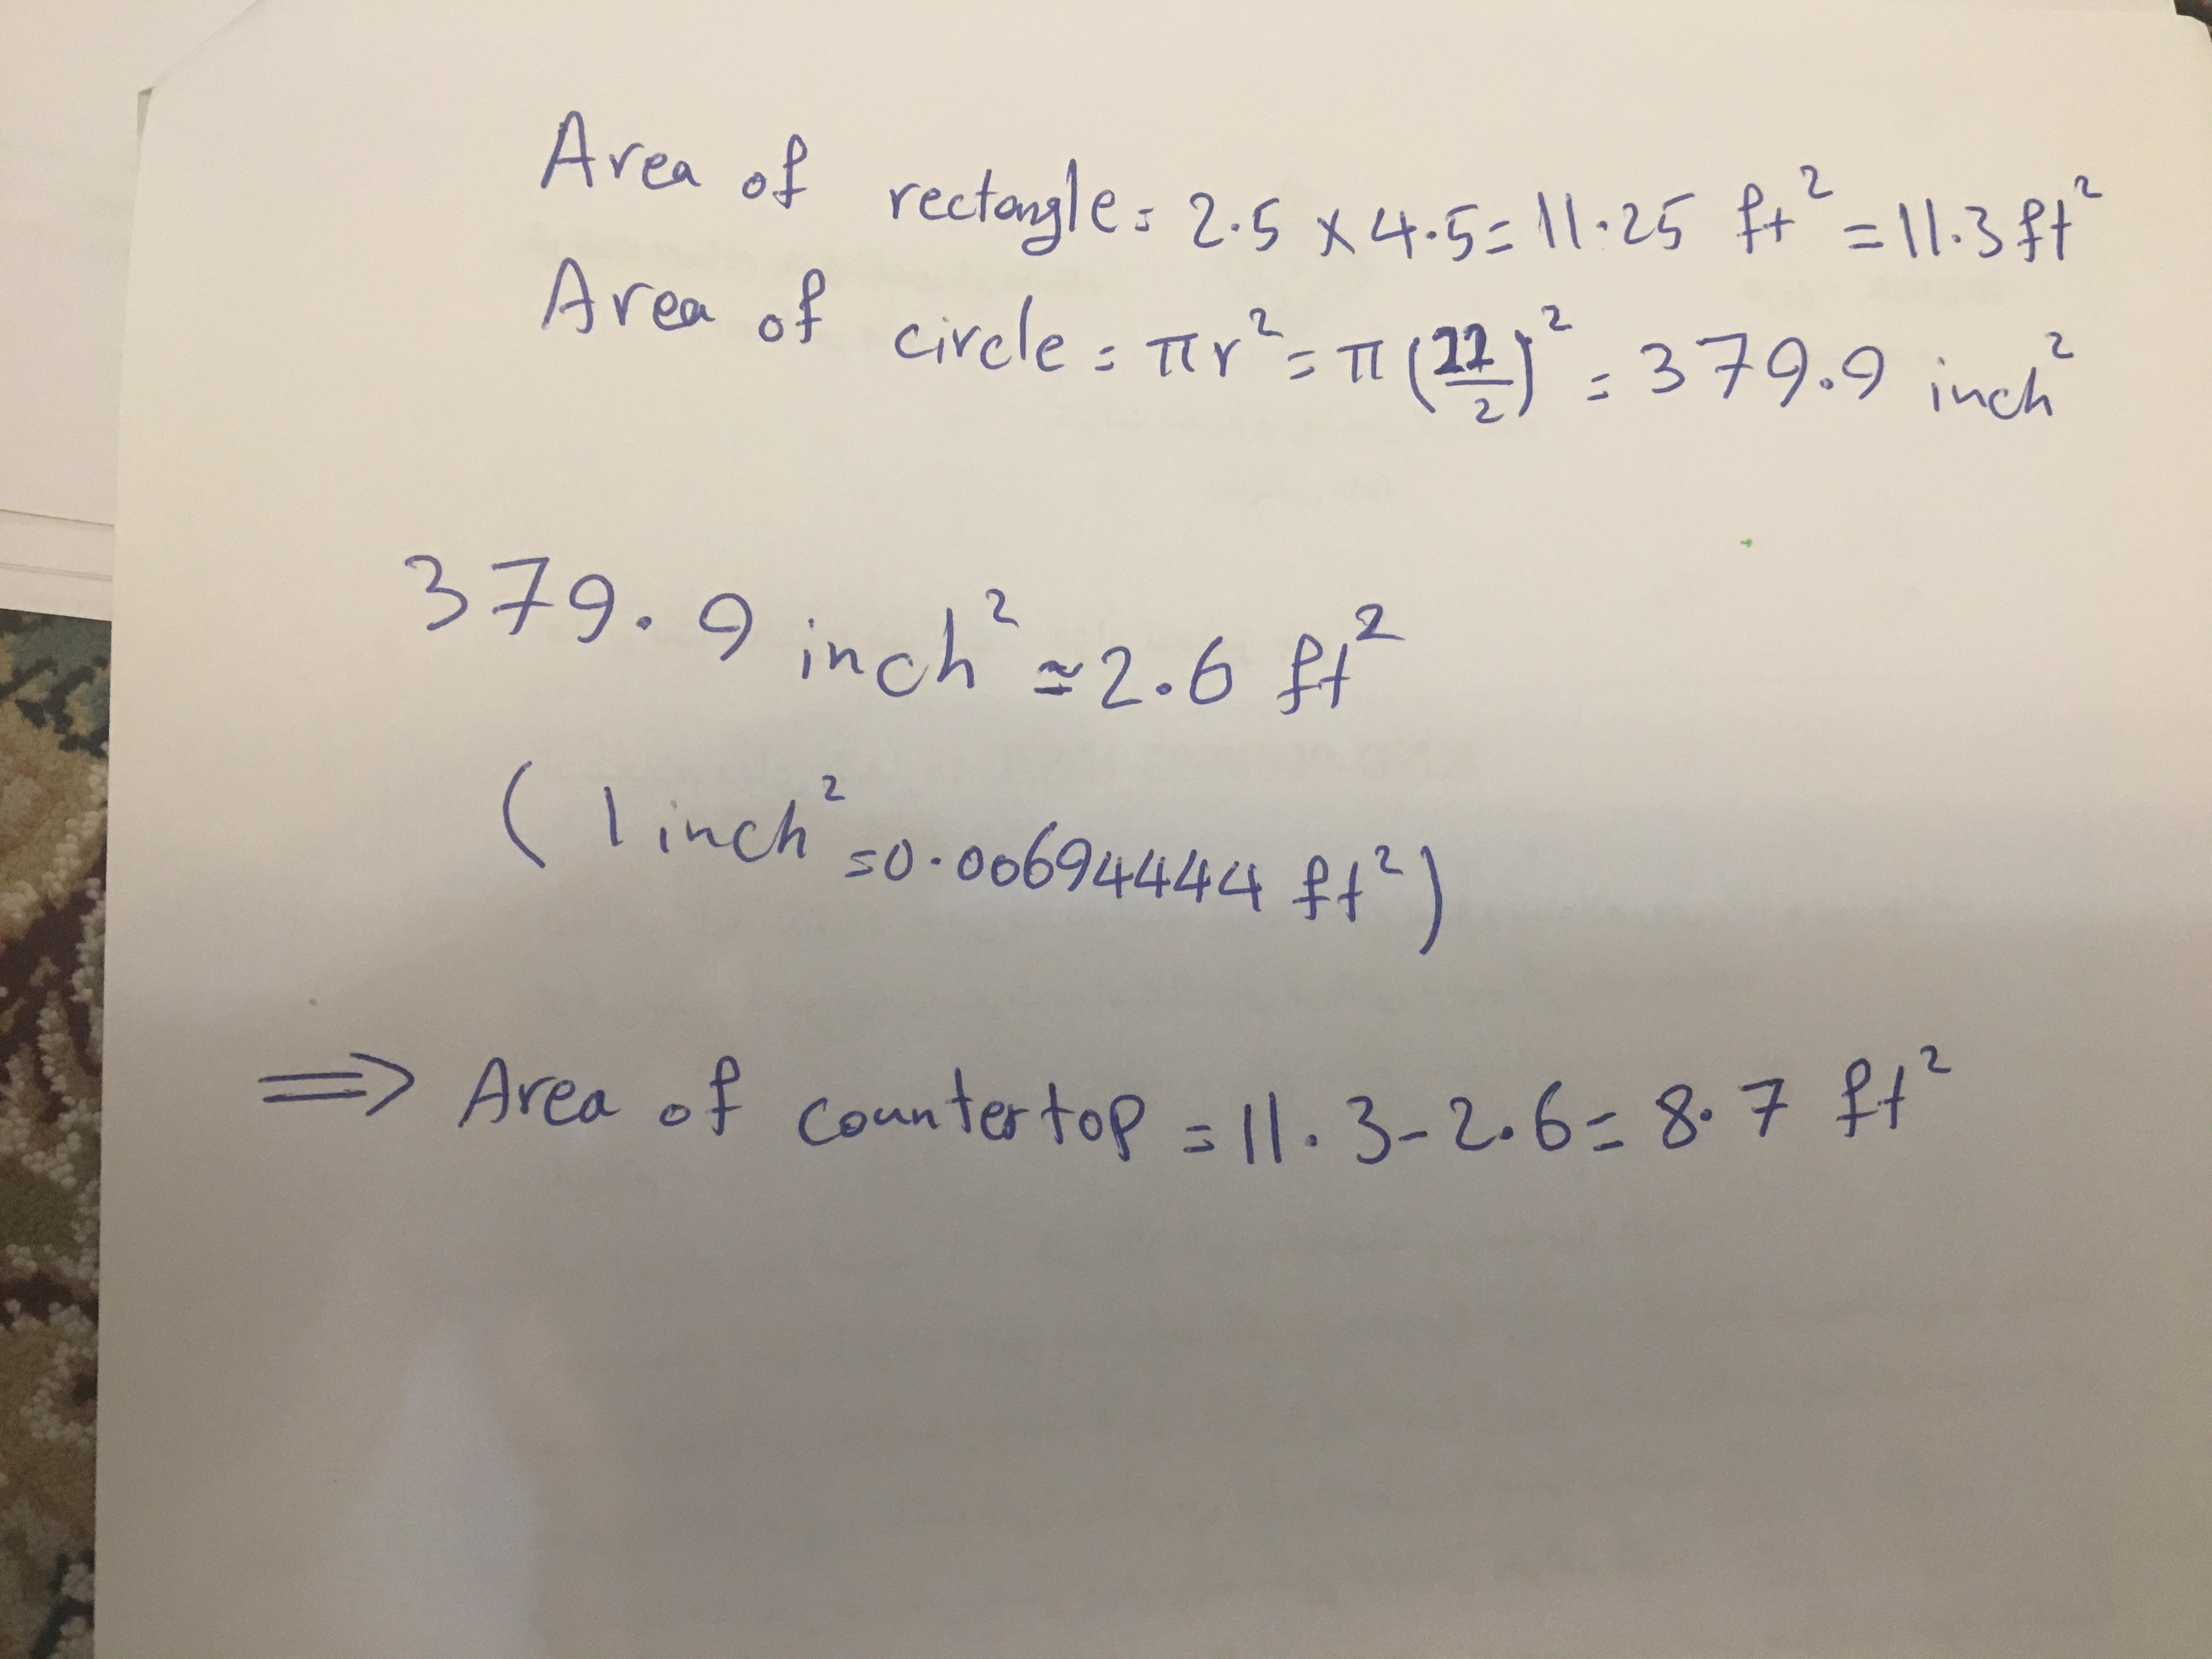 Area of rectangle = 2.5 × 4.5 = 11.25 ft² = 11.3 ft²
Area of circle = πr² = π(22/2)² = 379.9 inch²
379.9 inch² ≃ 2.6 ft²
(1 inch² = 0.00694444 ft²)
⇒ Area of countertop = 11.3 - 2.6 = 8.7 ft²